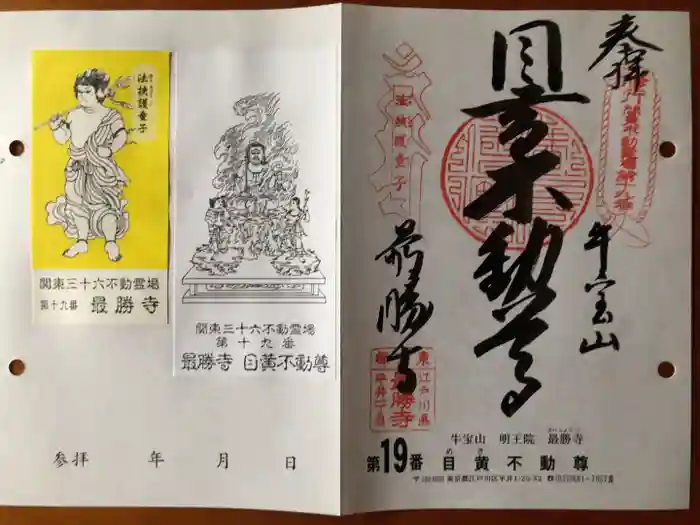 法挟護童子
関東三十六不動霊場
第十九番 最勝寺
関東三十六不動霊場
第十九番
最勝寺 目黄不動尊
参拝 年 月 日
奉拝
目黄不動尊
牛宝山
最勝寺
法挟護童子
最勝寺
牛宝山 明王院 最勝寺
第19番 目黄不動尊